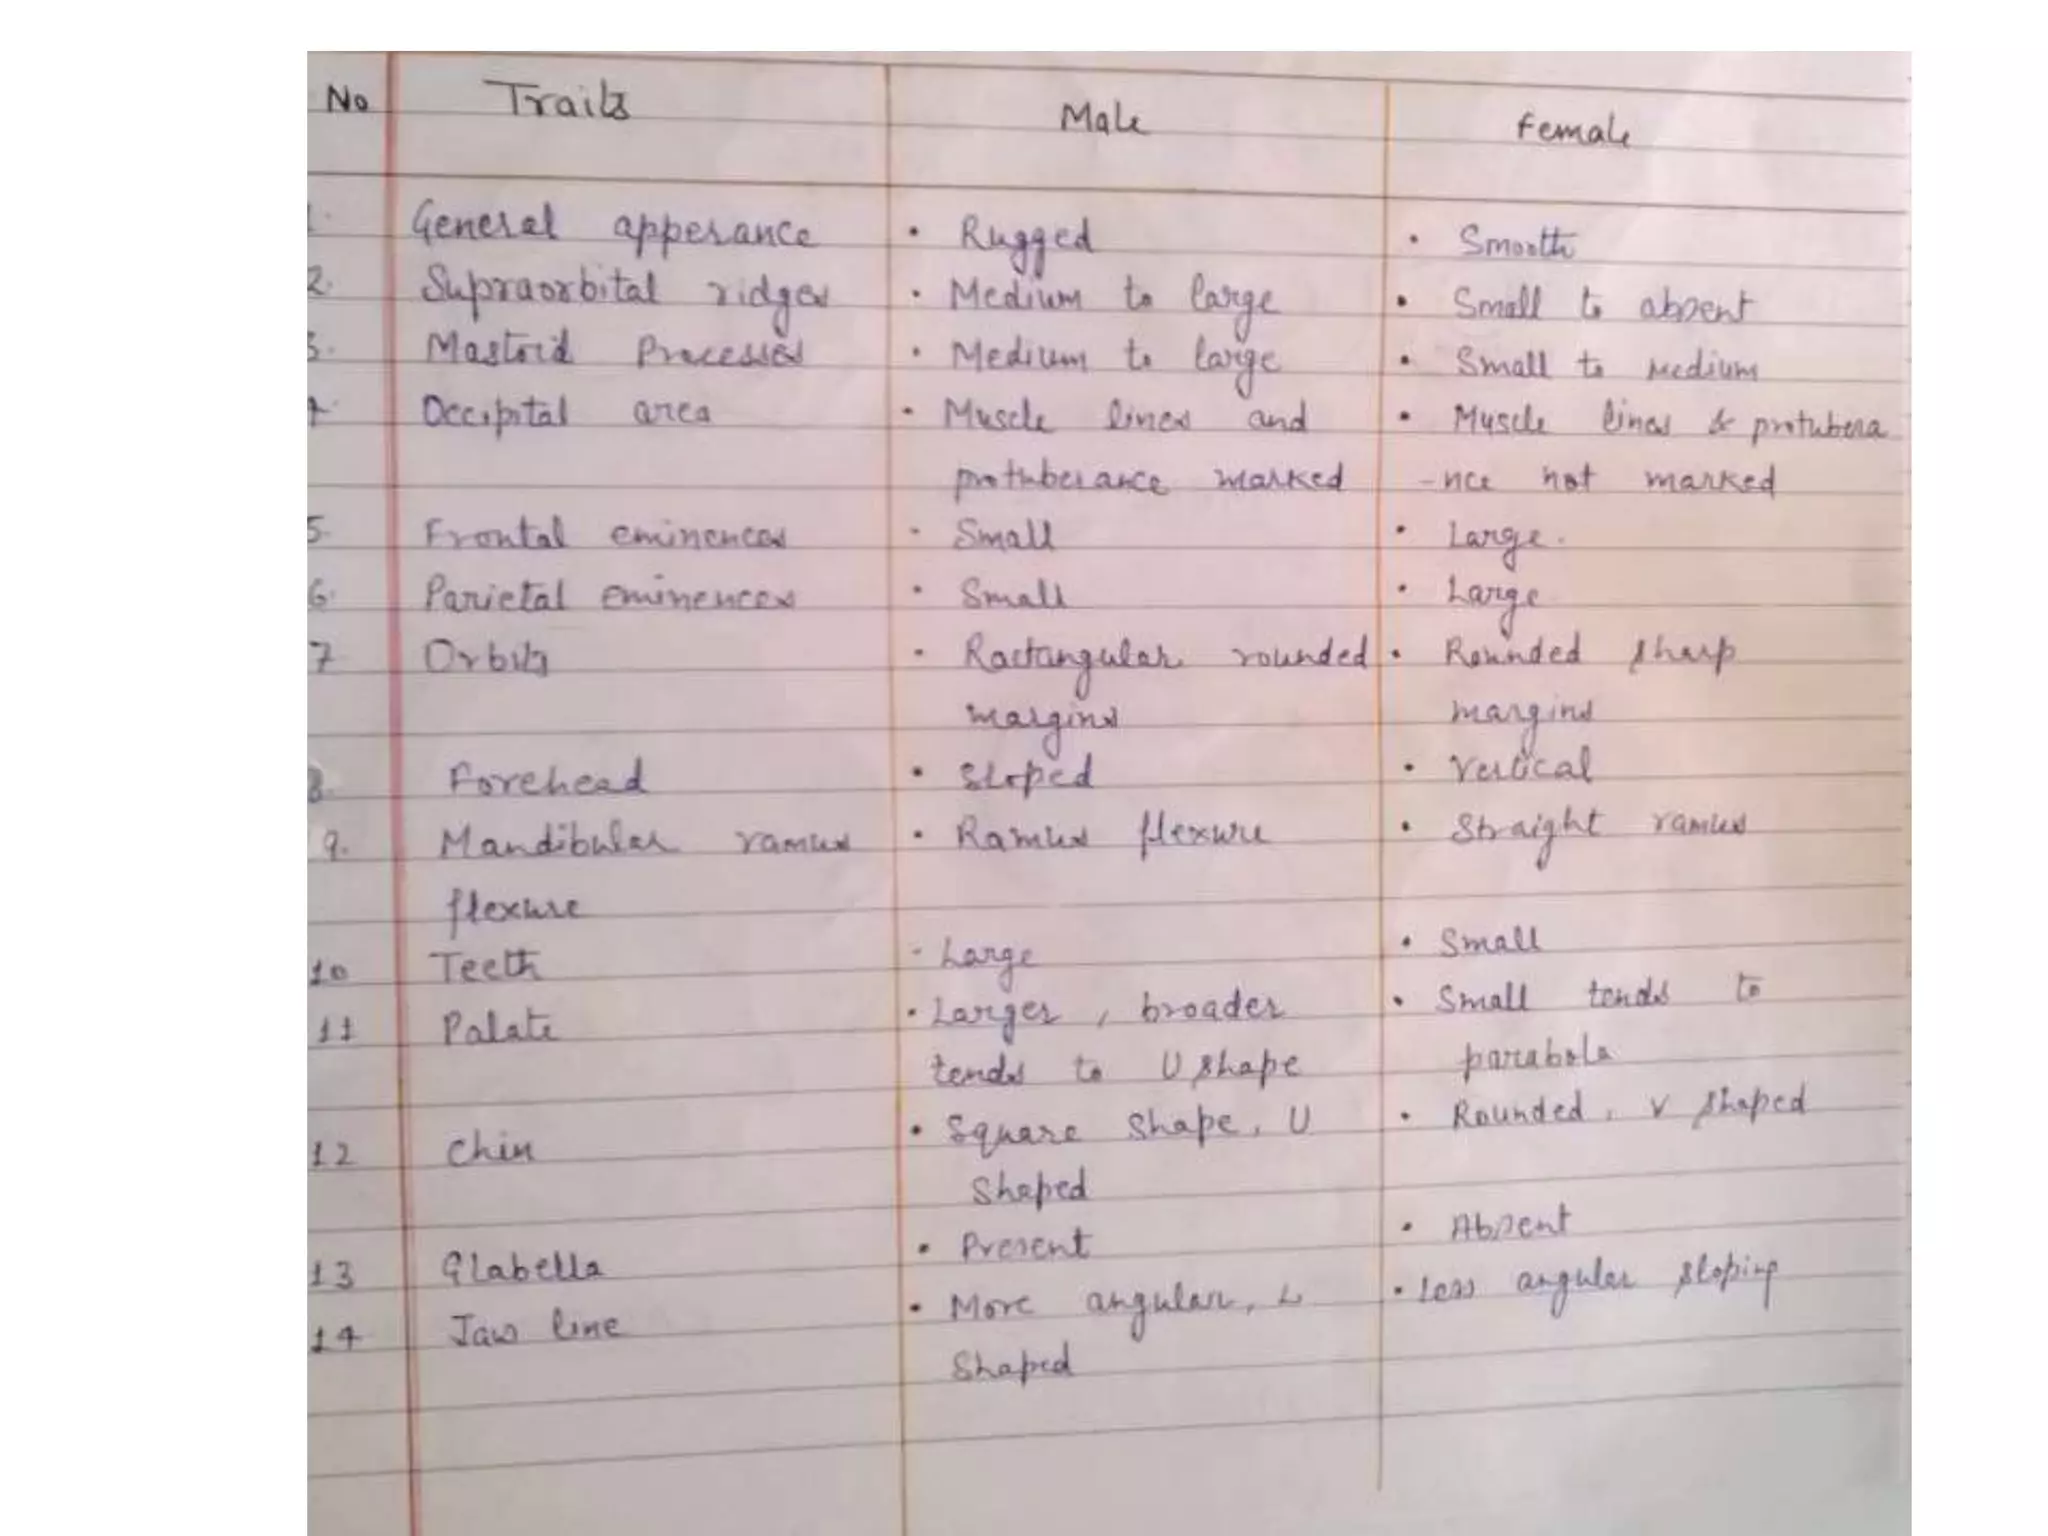 No Traits Male Female
1. General apperance • Rugged • Smooth
2. Supraorbital ridges • Medium to large • Small to absent
3. Mastoid Processes • Medium to large • Small to Medium
4. Occipital area • Muscle lines and • Muscle lines & protubera
protuberance marked -nce not marked
5. Frontal eminences • Small • Large.
6. Parietal eminences • Small • Large
7 Orbits • Ractangular rounded • Rounded sharp
margins margins
8. Forehead • Sloped • Vertical
9. Mandibular ramus • Ramus flexure • Straight ramus
flexure
10 Teeth - Large • Small
11 Palate • Larger, broader • Small tends to
tends to U shape parabola
12 Chin • Square shape, U • Rounded, V shaped
Shaped
13 Glabella • Present • Absent
14 Jaw line • More angular, L • Less angular sloping
Shaped